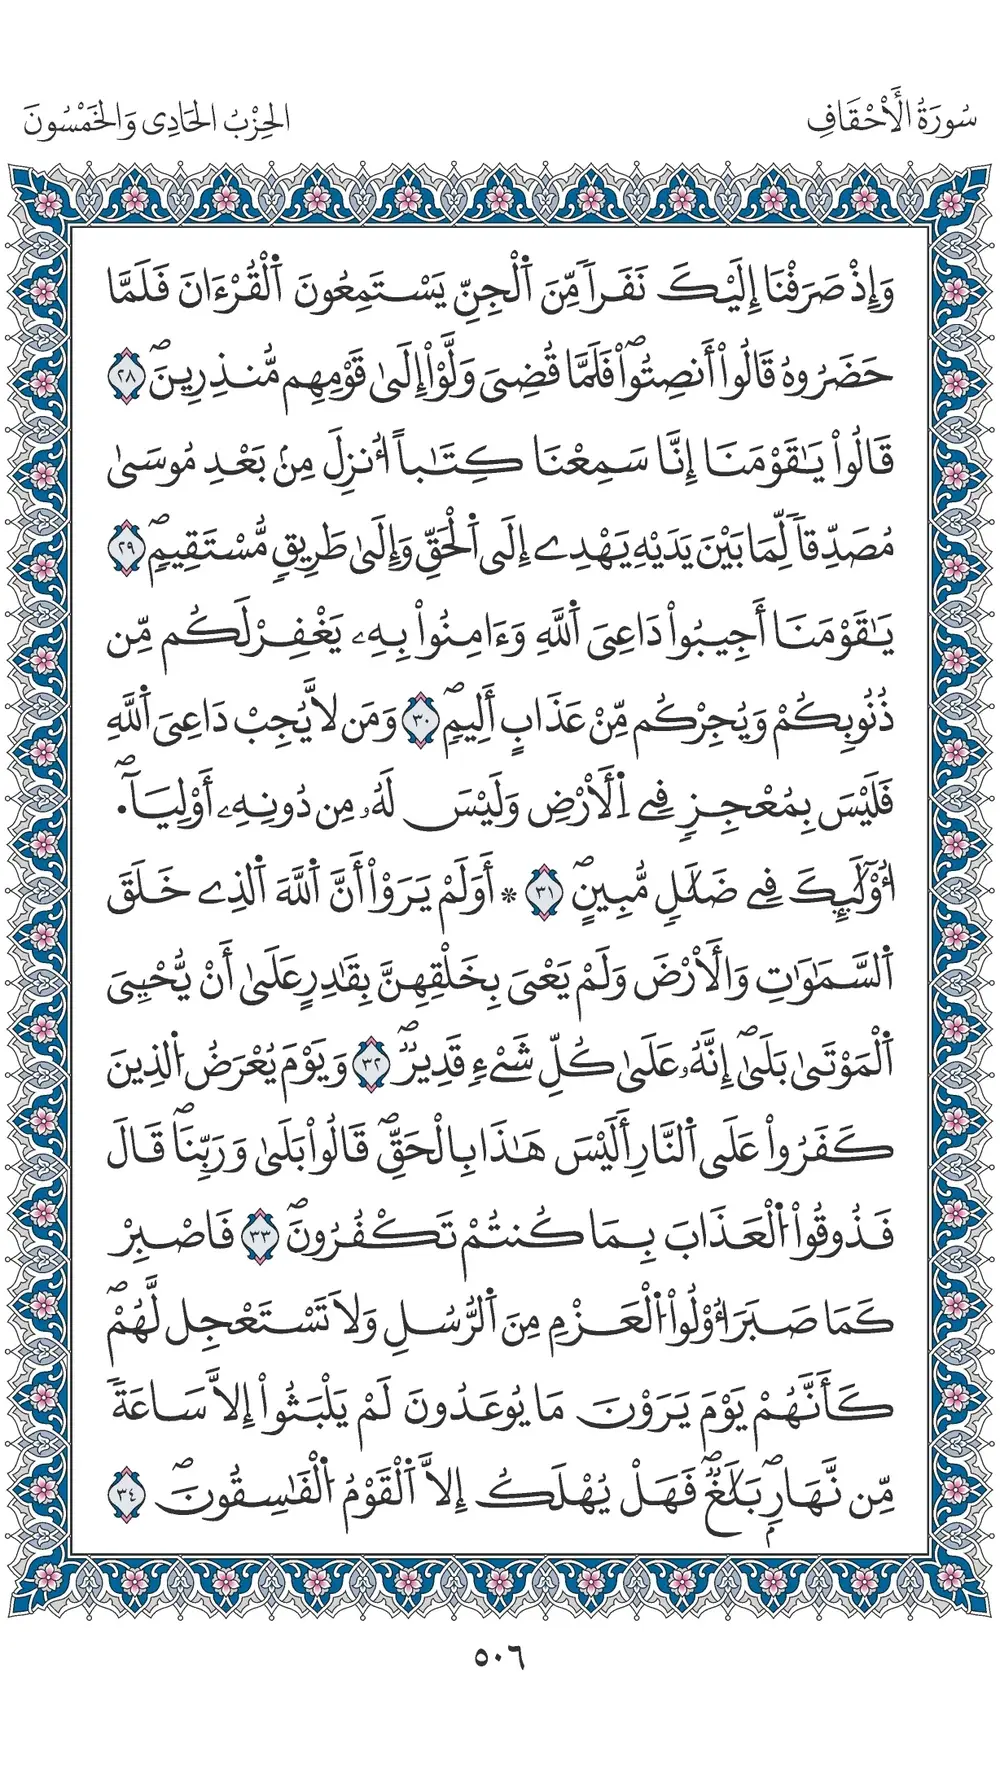 سُورَةُ الْأَحْقَافِ
الحِزْبُ الحَادِي وَالخَمْسُونَ
وَإِذْ صَرَفْنَا إِلَيْكَ نَفَراٗ مِّنَ اَ۬لْجِنِّ يَسْتَمِعُونَ اَ۬لْقُرْءَانَ فَلَمَّا
حَضَرُوهُ قَالُواْ أَنصِتُواْۖ فَلَمَّا قُضِيَ وَلَّوْاْ إِلَىٰ قَوْمِهِم مُّنذِرِينَۖ ٢٨
قَالُواْ يَٰقَوْمَنَا إِنَّا سَمِعْنَا كِتَٰباً ا۟نزِلَ مِنۢ بَعْدِ مُوسَىٰ
مُصَدِّقاٗ لِّمَا بَيْنَ يَدَيْهِ يَهْدِے إِلَى اَ۬لْحَقِّ وَإِلَىٰ طَرِيقٖ مُّسْتَقِيمٖۖ ٢٩
يَٰقَوْمَنَا أَجِيبُواْ دَاعِيَ اَ۬للَّهِ وَءَامِنُواْ بِهِۦ يَغْفِرْ لَكُم مِّن
ذُنُوبِكُمْ وَيُجِرْكُم مِّنْ عَذَابٍ أَلِيمٖۖ ٣٠ وَمَن لَّا يُجِبْ دَاعِيَ اَ۬للَّهِ
فَلَيْسَ بِمُعْجِزٖ فِے اِ۬لْأَرْضِ وَلَيْسَ لَهُۥ مِن دُونِهِۦ أَوْلِيَآءُۖ
ا۟وْلَٰٓئِكَ فِے ضَلَٰلٖ مُّبِينٍۖ ٣١ ۞ أَوَلَمْ يَرَوْاْ أَنَّ اَ۬للَّهَ اَ۬لذِے خَلَقَ
اَ۬لسَّمَٰوَٰتِ وَالْأَرْضَ وَلَمْ يَعْيَ بِخَلْقِهِنَّ بِقَٰدِرٍ عَلَىٰ أَنْ يُّحْـِۧيَ
اَ۬لْمَوْتَىٰ بَلَىٰۖ إِنَّهُۥ عَلَىٰ كُلِّ شَےْءٖ قَدِيرٞۖ ٣٢ وَيَوْمَ يُعْرَضُ اُ۬لذِينَ
كَفَرُواْ عَلَى اَ۬لنَّارِ أَلَيْسَ هَٰذَا بِالْحَقِّۖ قَالُواْ بَلَىٰ وَرَبِّنَاۖ قَالَ
فَذُوقُواْ اُ۬لْعَذَابَ بِمَا كُنتُمْ تَكْفُرُونَۖ ٣٣ فَاصْبِرْ
كَمَا صَبَرَ ا۟وْلُواْ اُ۬لْعَزْمِ مِنَ اَ۬لرُّسُلِ وَلَا تَسْتَعْجِل لَّهُمْۖ
كَأَنَّهُمْ يَوْمَ يَرَوْنَ مَا يُوعَدُونَ لَمْ يَلْبَثُواْ إِلَّا سَاعَةٗ
مِّن نَّهَارِۢۖ بَلَٰغٞۖ فَهَلْ يُهْلَكُ إِلَّا اَ۬لْقَوْمُ اُ۬لْفَٰسِقُونَۖ ٣٤
٥٠٦